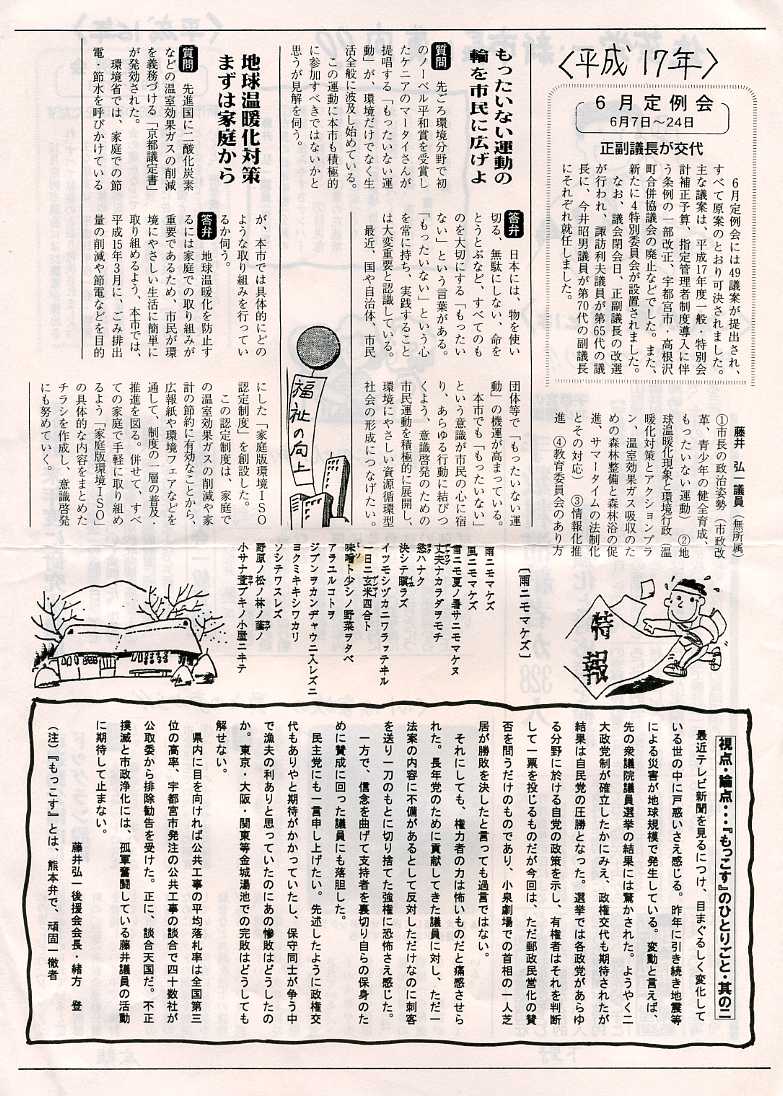 〈平成17年〉
6月定例会
6月7日〜24日
正副議長が交代
6月定例会には49議案が提出され、
すべて原案のとおり可決されました。
主な議案は、平成17年度一般・特別会
計補正予算、指定管理者制度導入に伴
う条例の一部改正、宇都宮市・高根沢
町合併協議会の廃止などでした。また、
新たに4特別委員会が設置されました。
なお、議会閉会日、正副議長の改選
が行われ、諏訪利夫議員が第65代の議
長に、今井昭男議員が第70代の副議長
にそれぞれ就任しました。
藤井 弘一議員(無所属)
①市長の政治姿勢(市政改
革、青少年の健全育成、
もったいない運動) ②地
球温暖化現象と環境行政(温
暖化対策とアクションプラ
ン、温室効果ガス吸収のた
めの森林整備と森林浴の促
進、サマータイムの法制化
とその対応) ③情報化推
進 ④教育委員会のあり方
もったいない運動の
輪を市民に広げよ
質問 先ごろ環境分野で初
のノーベル平和賞を受賞し
たケニアのマータイさんが
提唱する「もったいない運
動」が、環境だけでなく生
活全般に波及し始めている。
この運動に本市も積極的
に参加すべきではないかと
思うが見解を伺う。
答弁 日本には、物を使い
切る、無駄にしない、命を
とうとぶなど、すべてのも
のを大切にする「もったい
ない」という言葉がある。
「もったいない」という心
を常に持ち、実践すること
は大変重要と認識している。
最近、国や自治体、市民
団体等で「もったいない運
動」の機運が高まっている。
本市でも「もったいない」
という意識が市民の心に宿
り、あらゆる行動に結びつ
くよう、意識啓発のための
市民運動を積極的に展開し、
環境にやさしい資源循環型
社会の形成につなげたい。
地球温暖化対策
まずは家庭から
質問 先進国に二酸化炭素
などの温室効果ガスの削減
を義務づける「京都議定書」
が発効された。
環境省では、家庭での節
電・節水を呼びかけている
が、本市では具体的にどの
ような取り組みを行ってい
るか伺う。
答弁 地球温暖化を防止す
るには家庭での取り組みが
重要であるため、市民が環
境にやさしい生活に簡単に
取り組めるよう、本市では、
平成15年3月に、ごみ排出
量の削減や節電などを目的
にした「家庭版環境ISO
認定制度」を創設した。
この認定制度は、家庭で
の温室効果ガスの削減や家
計の節約に有効なことから、
広報紙や環境フェアなどを
通して、制度の一層の普及・
推進を図る。併せて、すべ
ての家庭で手軽に取り組め
るよう「家庭版環境ISO」
の具体的な内容をまとめた
チラシを作成し、意識啓発
にも努めていく。
福祉の向上
特報
〔雨ニモマケズ〕
雨ニモマケズ
風ニモマケズ
雪ニモ夏ノ暑サニモマケヌ
丈夫ナカラダヲモチ
慾ハナク
決シテ瞋ラズ
イツモシヅカニワラッテヰル
一日ニ玄米四合ト
味噌ト少シノ野菜ヲタベ
アラユルコトヲ
ジブンヲカンヂャウニ入レズニ
ヨクミキキシワカリ
ソシテワスレズ
野原ノ松ノ林ノ蔭ノ
小サナ萱ブキノ小屋ニヰテ
視点・論点・・・『もっこす』のひとりごと・其の二
最近テレビ新聞を見るにつけ、目まぐるしく変化して
いる世の中に戸惑いさえ感じる。昨年に引き続き地震等
による災害が地球規模で発生している。変動と言えば、
先の衆議院議員選挙の結果には驚かされた。ようやく二
大政党制が確立したかにみえ、政権交代も期待されたが
結果は自民党の圧勝となった。選挙では各政党があらゆ
る分野に於ける自党の政策を示し、有権者はそれを判断
して一票を投じるものだが今回は、ただ郵政民営化の賛
否を問うだけのものであり、小泉劇場での首相の一人芝
居が勝敗を決したと言っても過言ではない。
それにしても、権力者の力は怖いものだと痛感させら
れた。長年党のために貢献してきた議員に対し、ただ一
法案の内容に不備があるとして反対しただけなのに刺客
を送り一刀のもとに切り捨てた強権に恐怖さえ感じた。
一方で、信念を曲げて支持者を裏切り自らの保身のた
めに賛成に回った議員にも落胆した。
民主党にも一言申し上げたい。先述したように政権交
代もありやと期待がかかっていたし、保守同士が争う中
で漁夫の利ありと思っていたのにあの惨敗はどうしたの
か。東京・大阪・関東等金城湯池での完敗はどうしても
解せない。
県内に目を向ければ公共工事の平均落札率は全国第三
位の高率、宇都宮市発注の公共工事の談合で四十数社が
公取委から排除勧告を受けた。正に、談合天国だ。不正
撲滅と市政浄化には、孤軍奮闘している藤井議員の活動
に期待して止まない。
藤井弘一後援会会長・緒方 登
(注)『もっこす』とは、熊本弁で、頑固一徹者